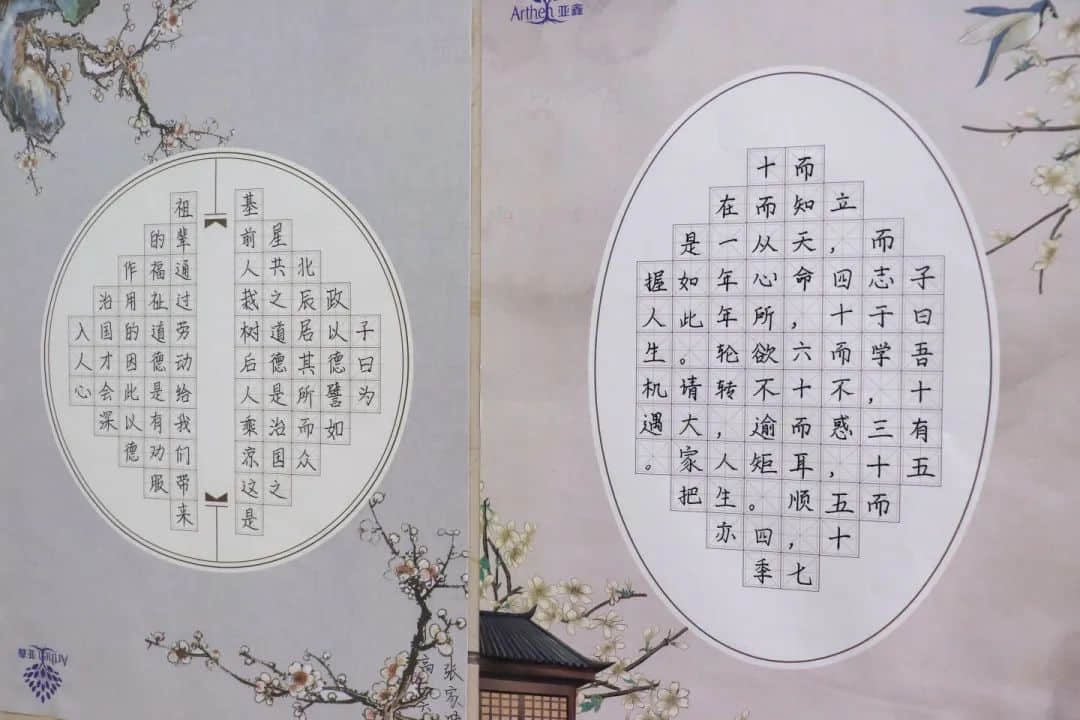 子曰为
政以德譬如
北辰居其所而众
星共之道德是治国之
基前人栽树后人乘凉这是
祖辈通过劳动给我们带来
的福祉道德是有劝服
作用的因此以德
治国才会深
入人心
Arthen 亚鑫
张家
高
Arthen 亚鑫
子曰吾十有五
而志于学，三十而
立，四十而不惑，五十
而知天命，六十而耳顺，七
十而从心所欲不逾矩。四季
在一年年轮转，人生亦
是如此。请大家把
握人生机遇。